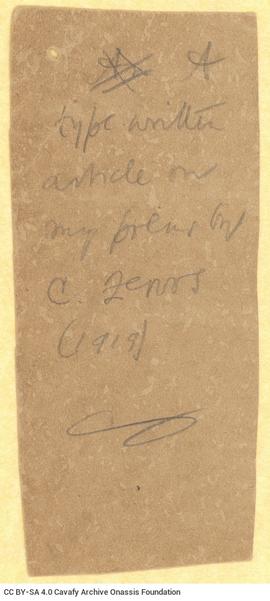 A
type written
article on
my poems by
C. Zenos
(1919)
CC BY-SA 4.0 Cavafy Archive Onassis Foundation